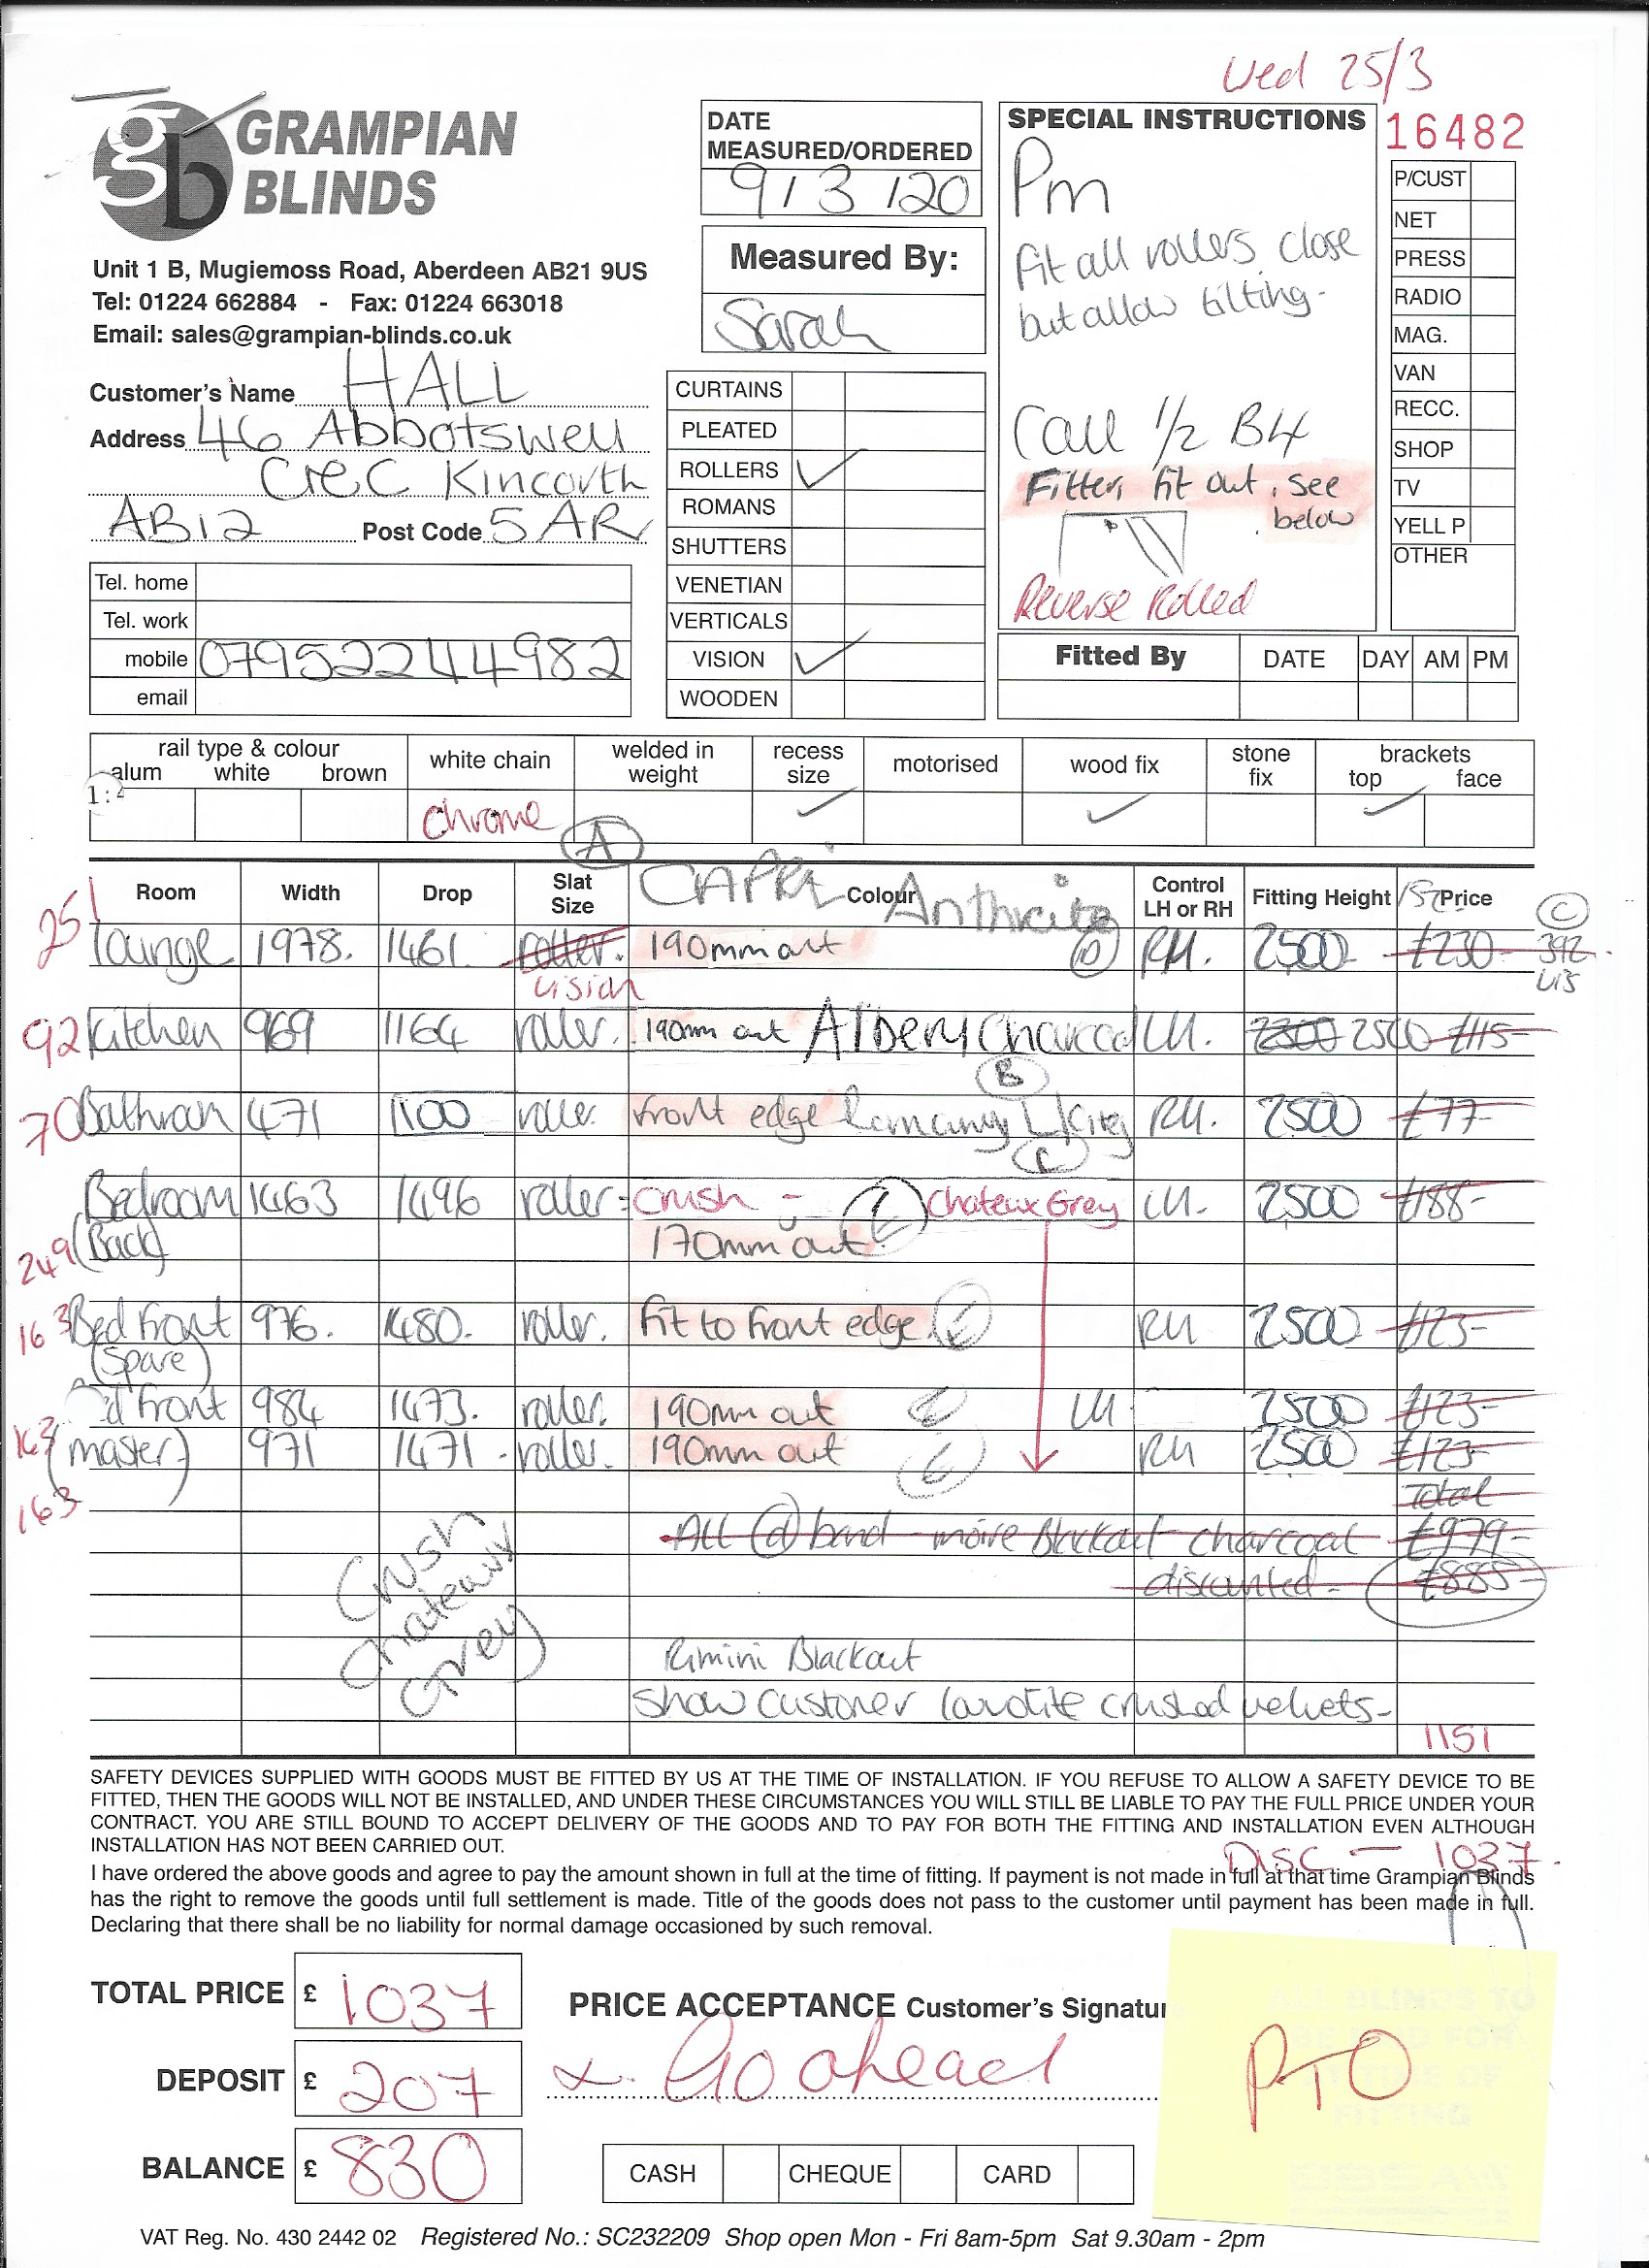 Wed 25/3
GRAMPIAN
BLINDS
Unit 1 B, Mugiemoss Road, Aberdeen AB21 9US
Tel: 01224 662884 - Fax: 01224 663018
Email: sales@grampian-blinds.co.uk
Customer's Name HALL
Address 46 Abbotswell
Crec Kincorth
AB12 Post Code 5AR
Tel. home
Tel. work
mobile 07952244982
email
DATE
MEASURED/ORDERED
9/3/20
Measured By:
Sarah
CURTAINS
PLEATED
ROLLERS ✓
ROMANS
SHUTTERS
VENETIAN
VERTICALS
VISION ✓
WOODEN
SPECIAL INSTRUCTIONS
Pm
Fit all rollers close
but allow tilting-
Call 1/2 B4
Fitter, fit out, see
below
Reverse Rolled
16482
P/CUST
NET
PRESS
RADIO
MAG.
VAN
RECC.
SHOP
TV
YELL P
OTHER
Fitted By DATE DAY AM PM
rail type & colour
alum white brown
white chain
welded in
weight
recess
size
motorised
wood fix
stone
fix
brackets
top face
chrome ✓ ✓ ✓
A
CAPRI Anthricite
Room Width Drop Slat Size Colour Control LH or RH Fitting Height Price
251 lounge 1978. 1461 roller. 190mm out D RH. 2500 £230- 392
vision C VIS
92 Kitchen 969 1164 roller. 190mm out Albery Charcoal LH. 2300 2500 £115-
B
70 Bathroom 471 1100 roller. front edge Romany L/Grey RH. 2500 £77-
C
Bedroom 1463 1496 roller - Crush - Chateux Grey LH- 2500 £188-
249 (Back) 170mm out
163 Bed front 976. 1480. roller. fit to front edge RH 2500 £123-
(Spare)
d front 984 1473. roller. 190mm out LH 2500 £123-
163 (master) 971 1471 - roller. 190mm out RH 2500 £123-
163
Total
All @ band - moire Blackout charcoal £979-
discounted - £885-
Crush
Chateaux
Grey
Rimini Blackout
Show customer louvolite crushed velvets-
1151
SAFETY DEVICES SUPPLIED WITH GOODS MUST BE FITTED BY US AT THE TIME OF INSTALLATION. IF YOU REFUSE TO ALLOW A SAFETY DEVICE TO BE
FITTED, THEN THE GOODS WILL NOT BE INSTALLED, AND UNDER THESE CIRCUMSTANCES YOU WILL STILL BE LIABLE TO PAY THE FULL PRICE UNDER YOUR
CONTRACT. YOU ARE STILL BOUND TO ACCEPT DELIVERY OF THE GOODS AND TO PAY FOR BOTH THE FITTING AND INSTALLATION EVEN ALTHOUGH
INSTALLATION HAS NOT BEEN CARRIED OUT.
Disc - 1037.
I have ordered the above goods and agree to pay the amount shown in full at the time of fitting. If payment is not made in full at that time Grampian Blinds
has the right to remove the goods until full settlement is made. Title of the goods does not pass to the customer until payment has been made in full.
Declaring that there shall be no liability for normal damage occasioned by such removal.
TOTAL PRICE £ 1037
DEPOSIT £ 207
BALANCE £ 830
PRICE ACCEPTANCE Customer's Signatur
x. Go ahead
CASH CHEQUE CARD
PTO
VAT Reg. No. 430 2442 02 Registered No.: SC232209 Shop open Mon - Fri 8am-5pm Sat 9.30am - 2pm